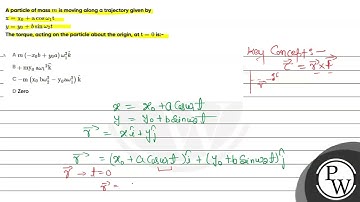 A particle of mass m is moving along a trajectory given by
x = x₀ + a cos ω₁t
y = y₀ + b sin ω₂t
The torque, acting on the particle about the origin, at t = 0 is:-
A m (−x₀b + y₀a) ω₁² k̂
B +m y₀ a ω₁² k̂
C −m (x₀ b ω₂² − y₀ a ω₁²) k̂
D Zero
Key Concept:-
τ⃗ = r⃗ × F⃗
x = x₀ + a cosω₁t
y = y₀ + b sinω₂t
r⃗ = xî + yĵ
r⃗ = (x₀ + a cosω₁t)î + (y₀ + b sinω₂t)ĵ
r⃗ → t = 0
r⃗ =
PW